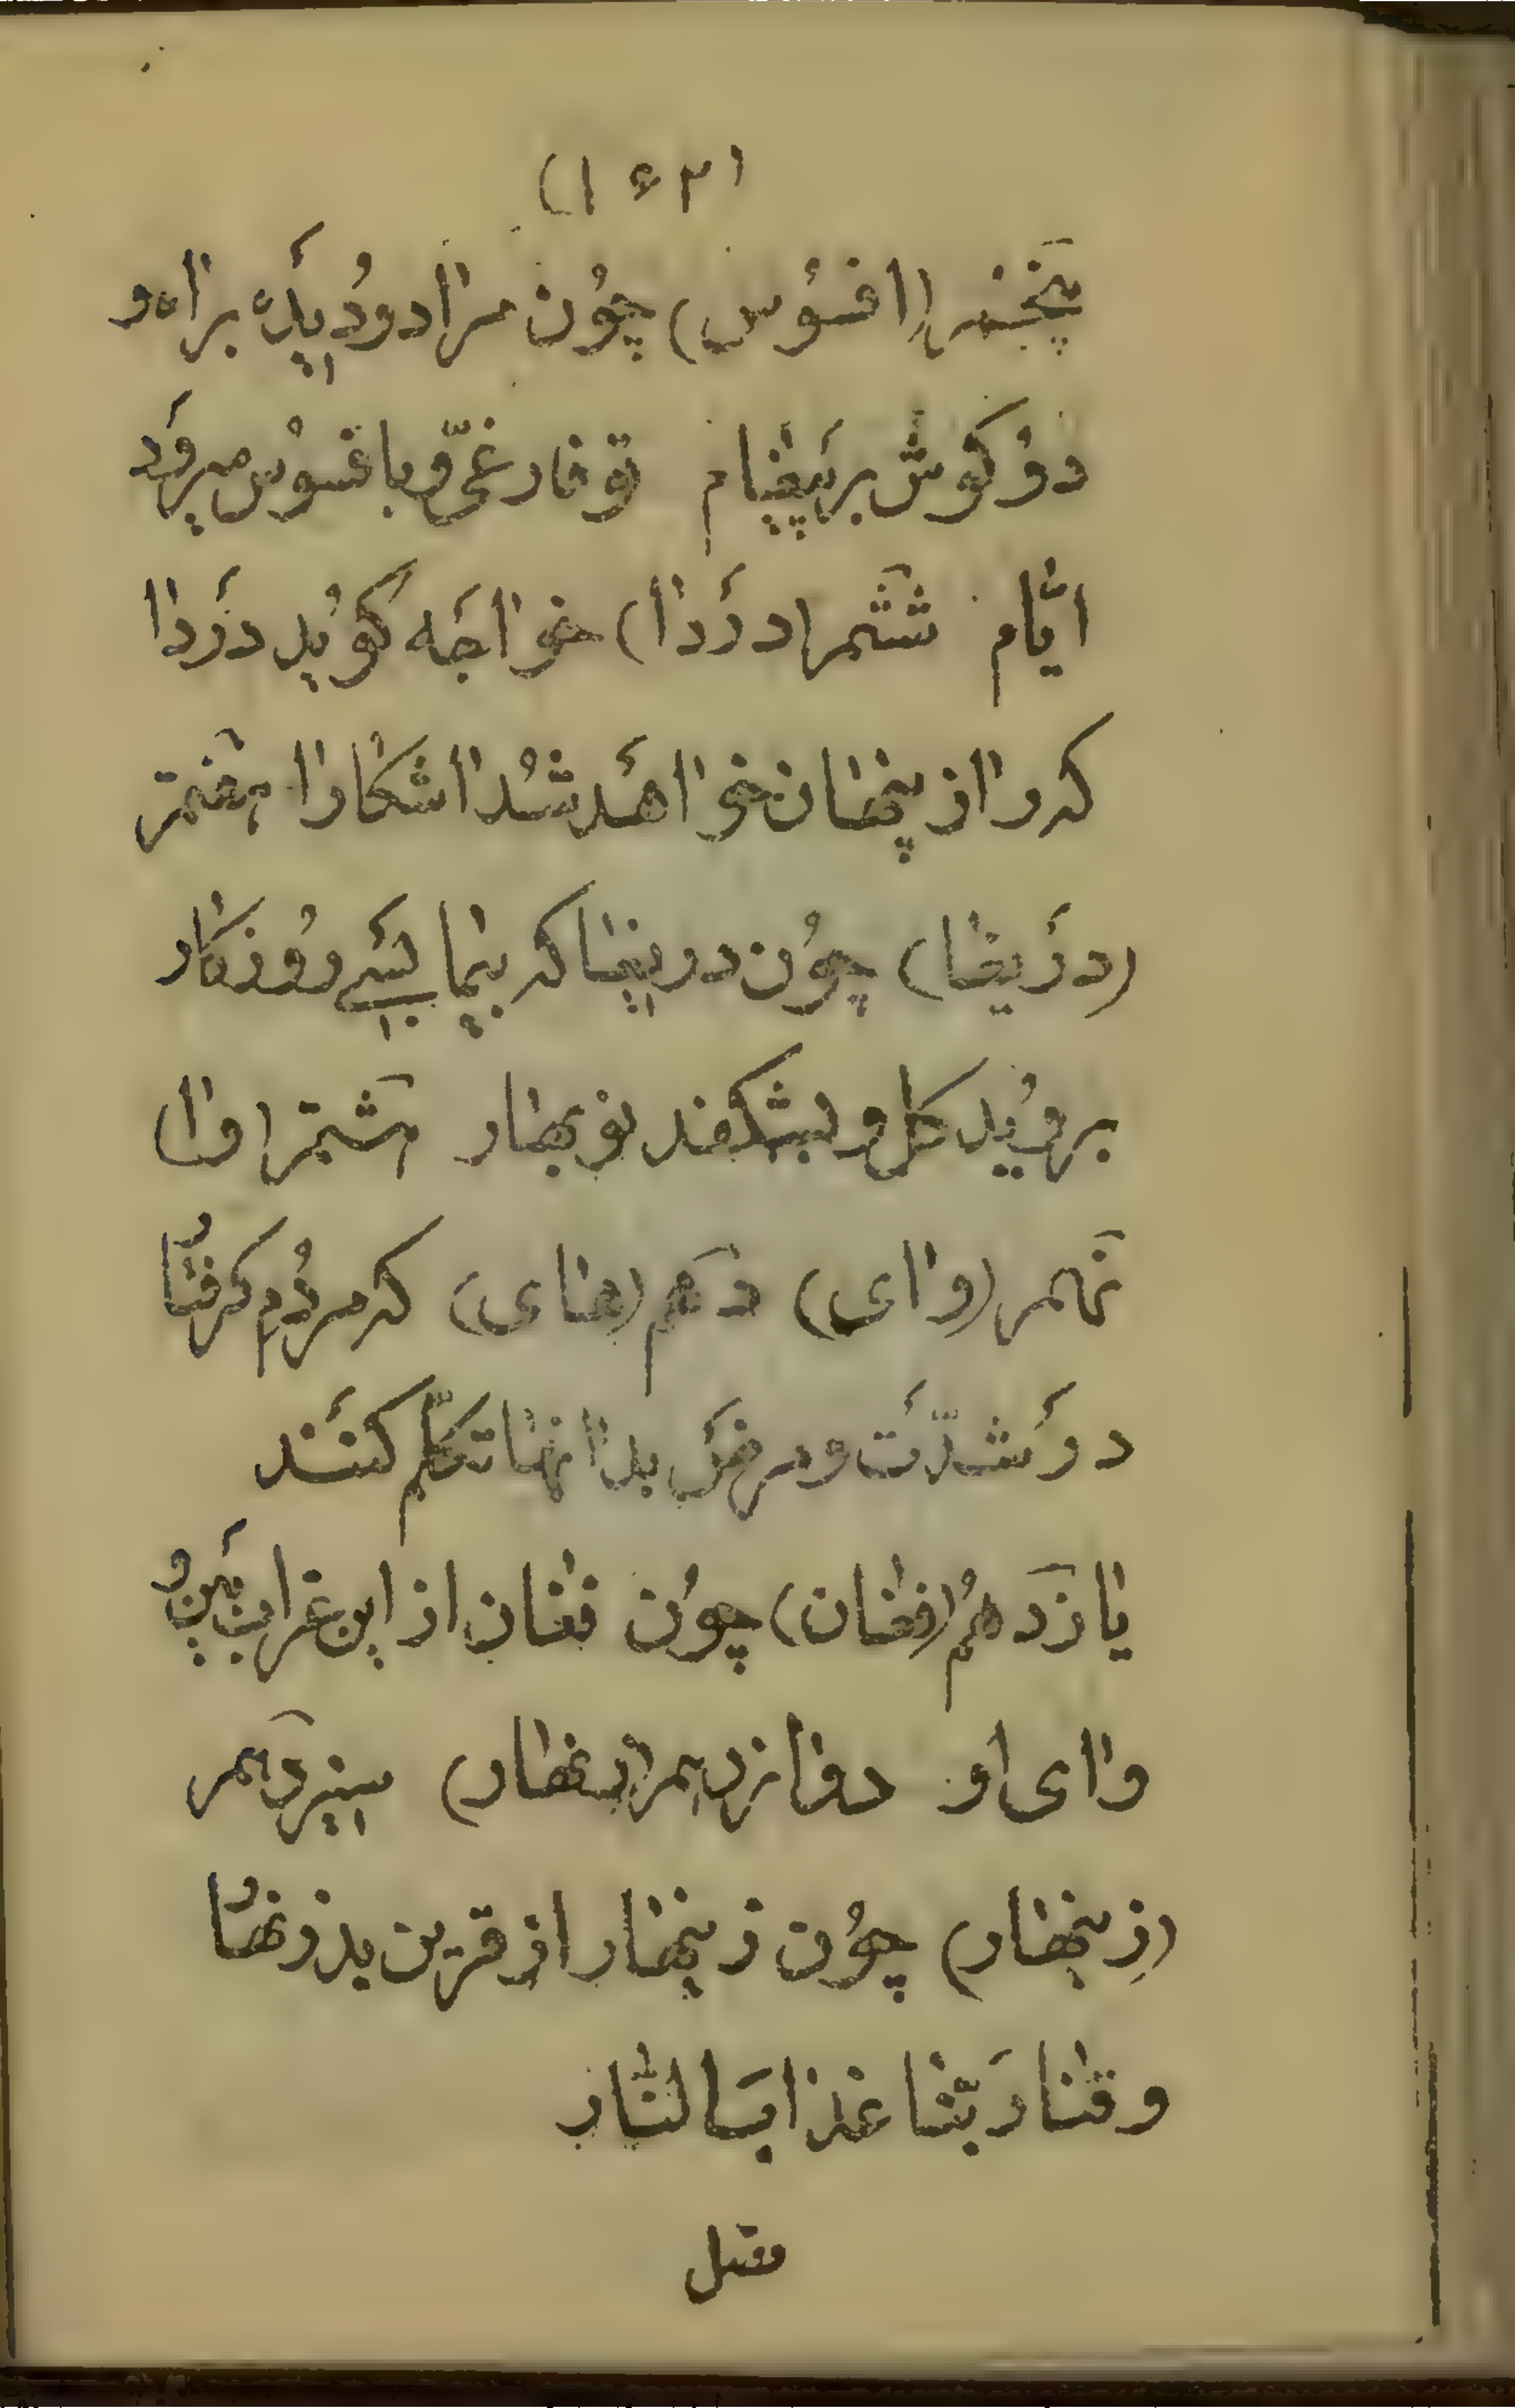 (۱۶۳)
پنجم (افسوُس) چوُن مرا دو دیدَه براه و
دو کوش بر پیغام تو فارغیّ و بافسوُس میروَد
ایّام ششم (دردا) خواجَه کوُید دردا
که راز پنهان خواهَد شُد اشکارا هفتم
(دریغا) چوُن دریغا که بیما بسے روُزکار
بروُید کل و بشکفد نو بهار هشتم (وا)
نهم (وای) دهم (های) که مردُم کرفتار
در شدّت و مرض بدانها تکلّم کنند
یازدهُم (فغان) چوُن فغان از این غراب بین وُ
وای او دوازدهم (نهار) سیزدهم
(زینهار) چوُن زینهار از قرین بد زنهار
وقنا ربّنا عذاب النّار